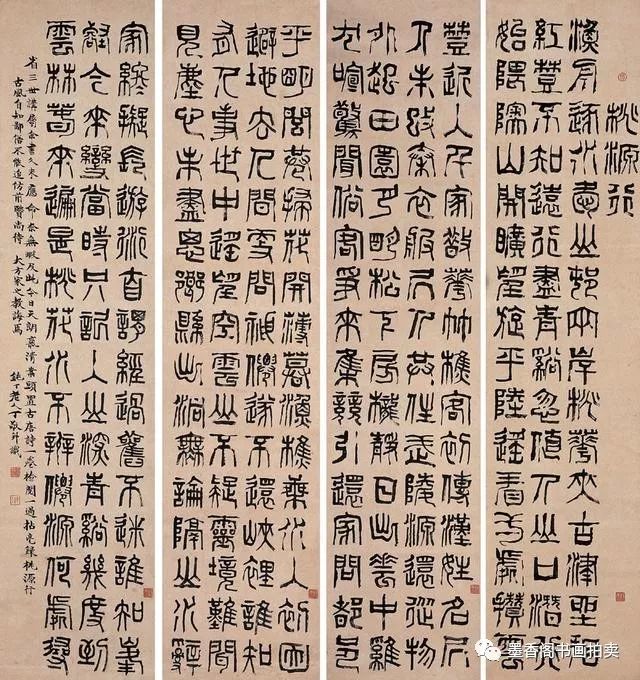 桃源行
漁舟逐水愛山邨兩岸桃花夾古津坐看
紅樹不知遠行盡青谿忽值人山口潛行
始隈隩山開曠望旋平陸遙看一處攢雲
樹近入千家散花竹樵客初傳漢姓名居
人未改秦衣服居人共住武陵源還從物
外起田園月明松下房櫳靜日出雲中雞
犬喧驚聞俗客爭來集競引還家問都邑
平明閭巷掃花開薄暮漁樵乘水入初因
避地去人間更問神仙遂不還峽裡誰知
有人事世中遙望空雲山不疑靈境難聞
見塵心未盡思鄉縣出洞無論隔山水辭
家終擬長遊衍自謂經過舊不迷誰知峯
壑今來變當時只記入山深青谿幾度到
雲林春來遍是桃花水不辨仙源何處尋
省三世講屬余書久未應命奈無暇及此今日天朗氣清案頭置古唐詩一卷檢閱一過拈毫錄桃源行
古風自知鄙俗不敢追仿前賢尚待大方家之教誨焉 鈍丁老人丁敬并識
墨香阁书画拍卖